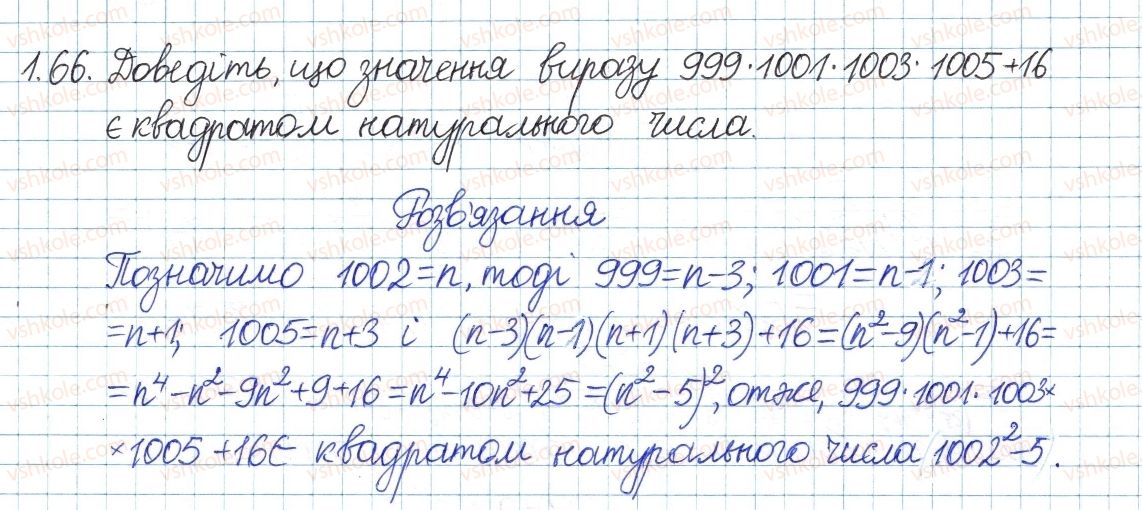 1.66. Доведіть, що значення виразу 999·1001·1003·1005+16
є квадратом натурального числа.
Розв'язання
Позначимо 1002=n, тоді 999=n-3; 1001=n-1; 1003=
=n+1; 1005=n+3 і (n-3)(n-1)(n+1)(n+3)+16=(n²-9)(n²-1)+16=
=n⁴-n²-9n²+9+16=n⁴-10n²+25=(n²-5)², отже, 999·1001·1003×
×1005+16 є квадратом натурального числа 1002²-5.